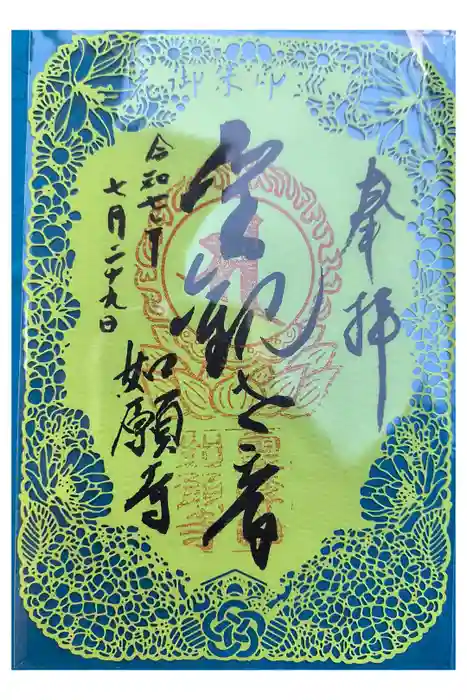 御朱印
奉拝
聖観世音
令和七年
七月二十九日
如願寺